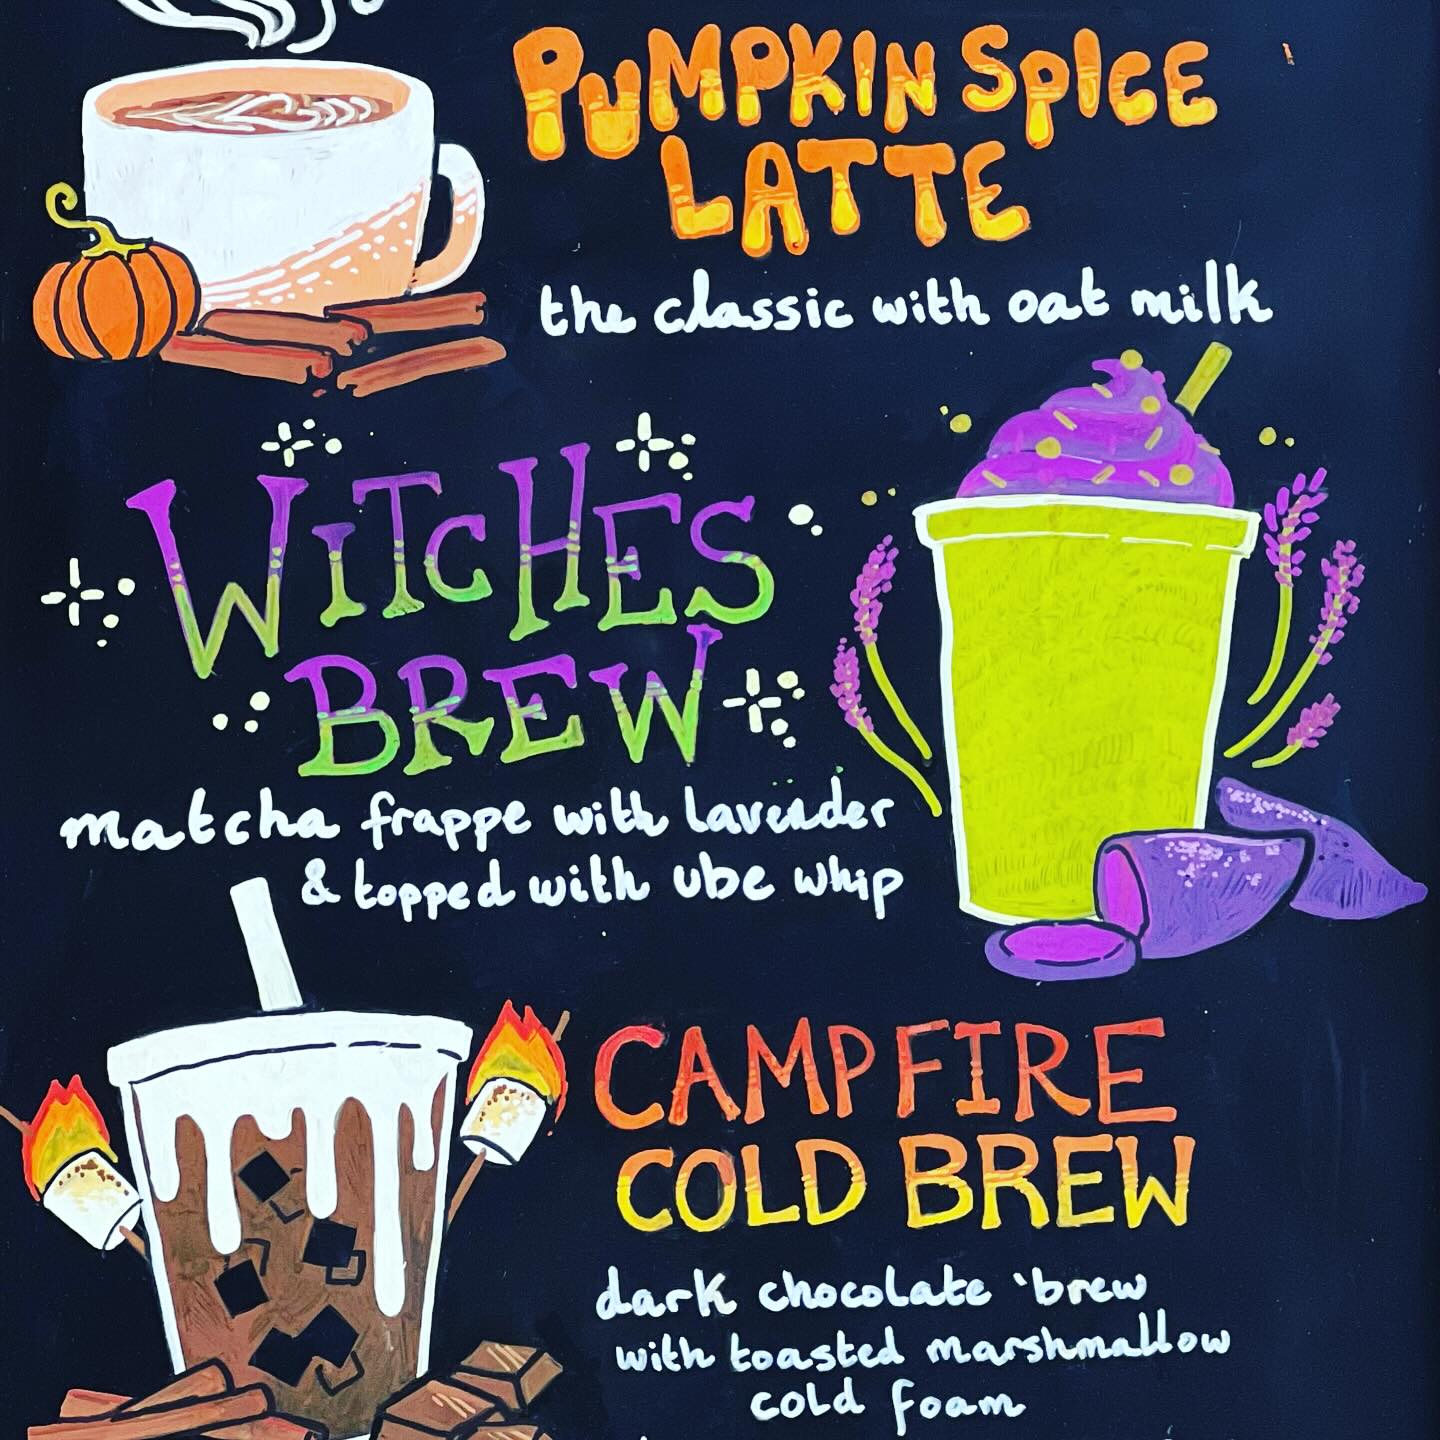 PUMPKIN SPICE
LATTE
the classic with oat milk
WITCHES
BREW
matcha frappe with lavender
& topped with ube whip
CAMPFIRE
COLD BREW
dark chocolate 'brew
with toasted marshmallow
cold foam